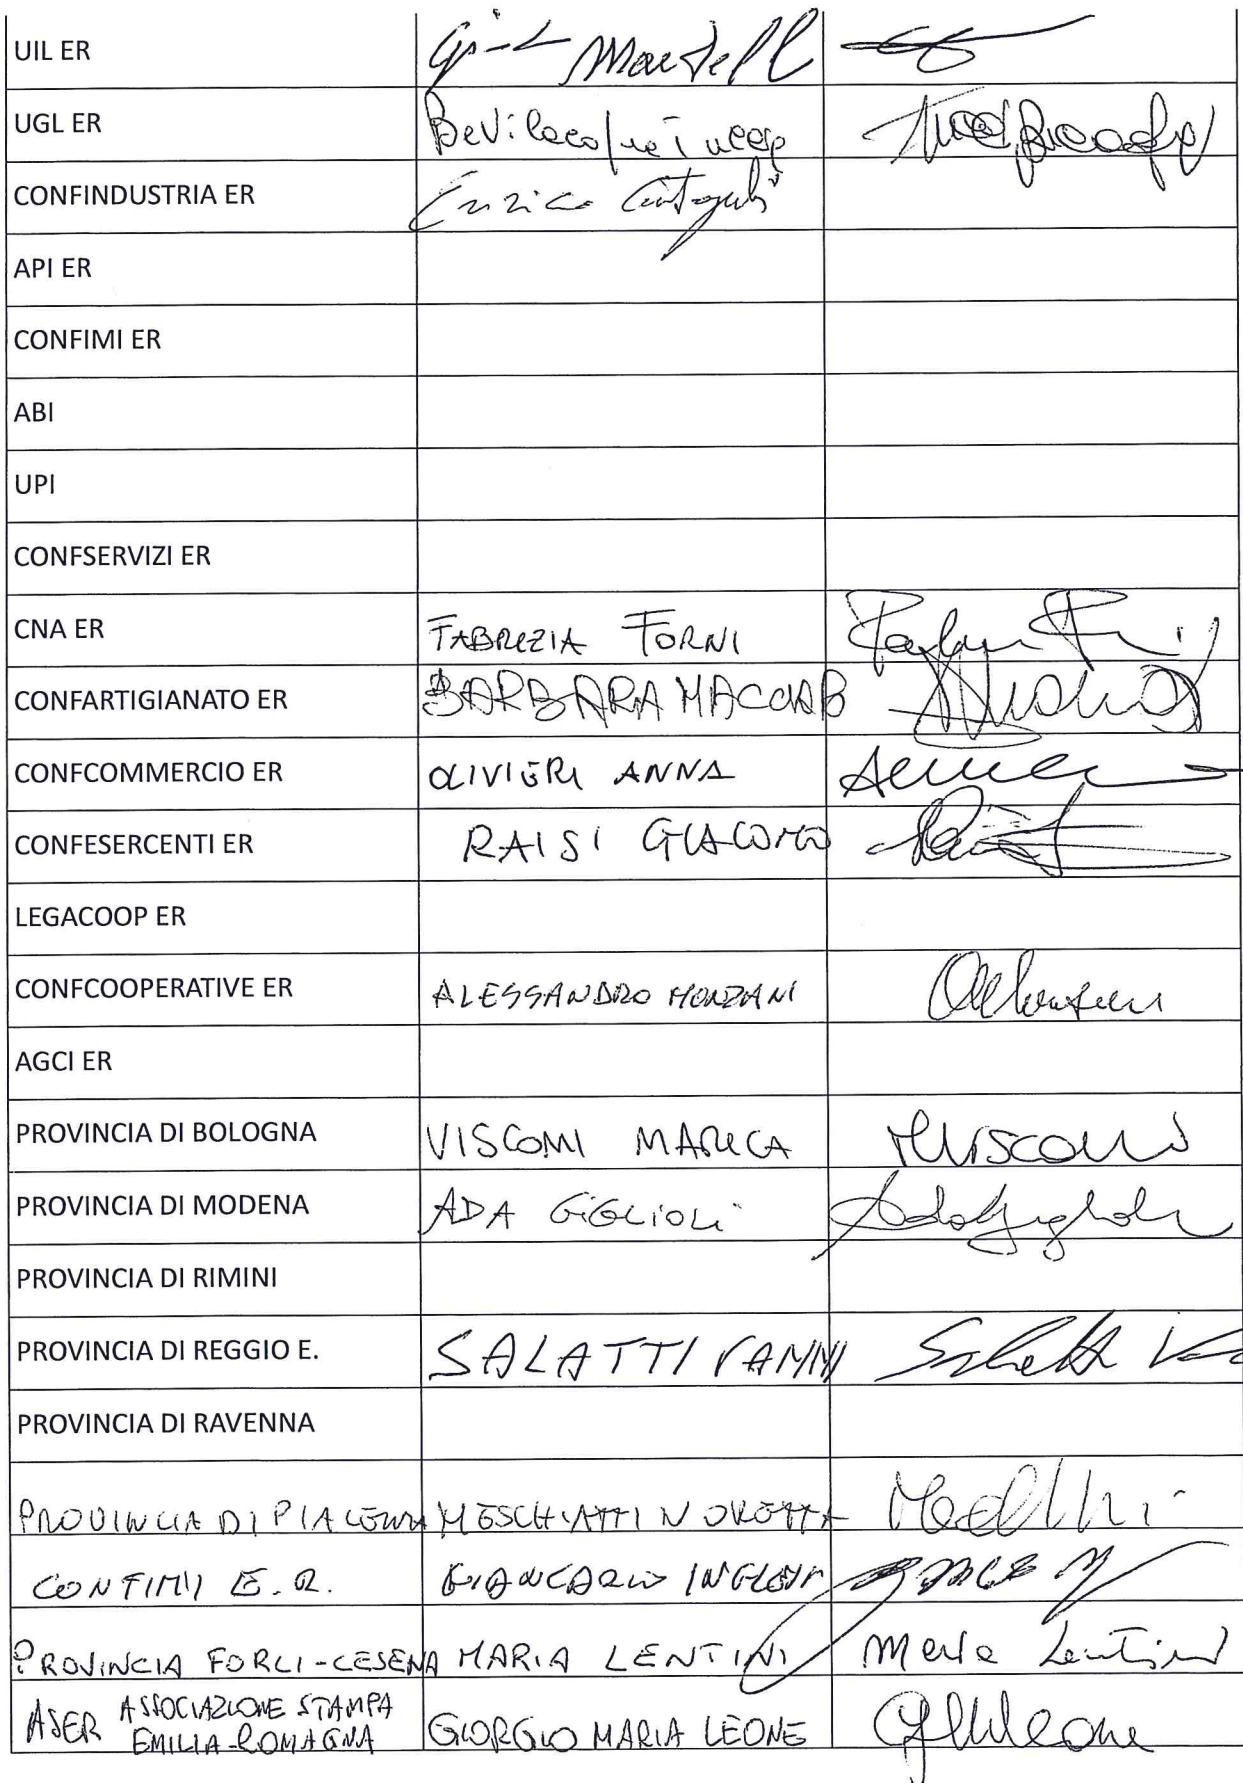 UIL ER
UGL ER Bevilacqua
CONFINDUSTRIA ER Enrico
API ER
CONFIMI ER
ABI
UPI
CONFSERVIZI ER
CNA ER FABRIZIA FORNI
CONFARTIGIANATO ER BARBARA MACCAB
CONFCOMMERCIO ER OLIVIERI ANNA
CONFESERCENTI ER RAISI GIACOMO
LEGACOOP ER
CONFCOOPERATIVE ER ALESSANDRO MONZANI
AGCI ER
PROVINCIA DI BOLOGNA VISCOMI MARICA MViscomi
PROVINCIA DI MODENA ADA GIGLIOLI Ada Giglioli
PROVINCIA DI RIMINI
PROVINCIA DI REGGIO E. SALATTI VANNI
PROVINCIA DI RAVENNA
PROVINCIA DI PIACENZA MESCHIATTI NORETTA
CONFIMI E.R. GIANCARLO
PROVINCIA FORLI-CESENA MARIA LENTINI Maria Lentini
ASER ASSOCIAZIONE STAMPA
EMILIA-ROMAGNA GIORGIO MARIA LEONE GMLeone